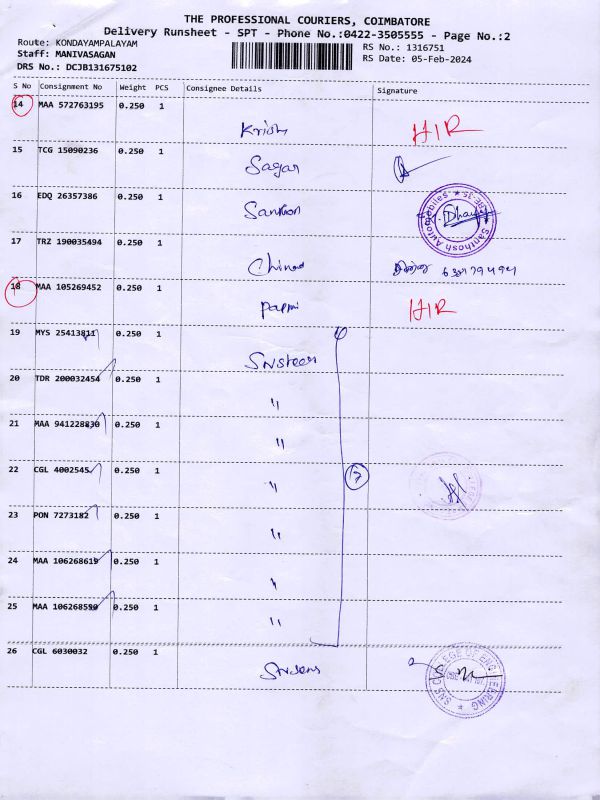 THE PROFESSIONAL COURIERS, COIMBATORE
Delivery Runsheet - SPT - Phone No.:0422-3505555 - Page No.:2
Route: KONDAYAMPALAYAM
RS No.: 1316751
Staff: MANIVASAGAN
RS Date: 05-Feb-2024
DRS No.: DCJB131675102
S No Consignment No Weight PCS Consignee Details Signature
14 MAA 572763195 0.250 1
Krish HIR
15 TCG 15090236 0.250 1
Sagar
16 EDQ 26357386 0.250 1
Santhosh Auto
17 TRZ 190035494 0.250 1
18 MAA 105269452 0.250 1
HIR
19 MYS 25413811 0.250 1
20 TDR 200032454 0.250 1
"
21 MAA 941228830 0.250 1
"
22 CGL 4002545 0.250 1
" 7
23 PON 7273182 0.250 1
"
24 MAA 106268619 0.250 1
"
25 MAA 106268590 0.250 1
"
26 CGL 6030032 0.250 1
SNS COLLEGE OF ENGINEERING